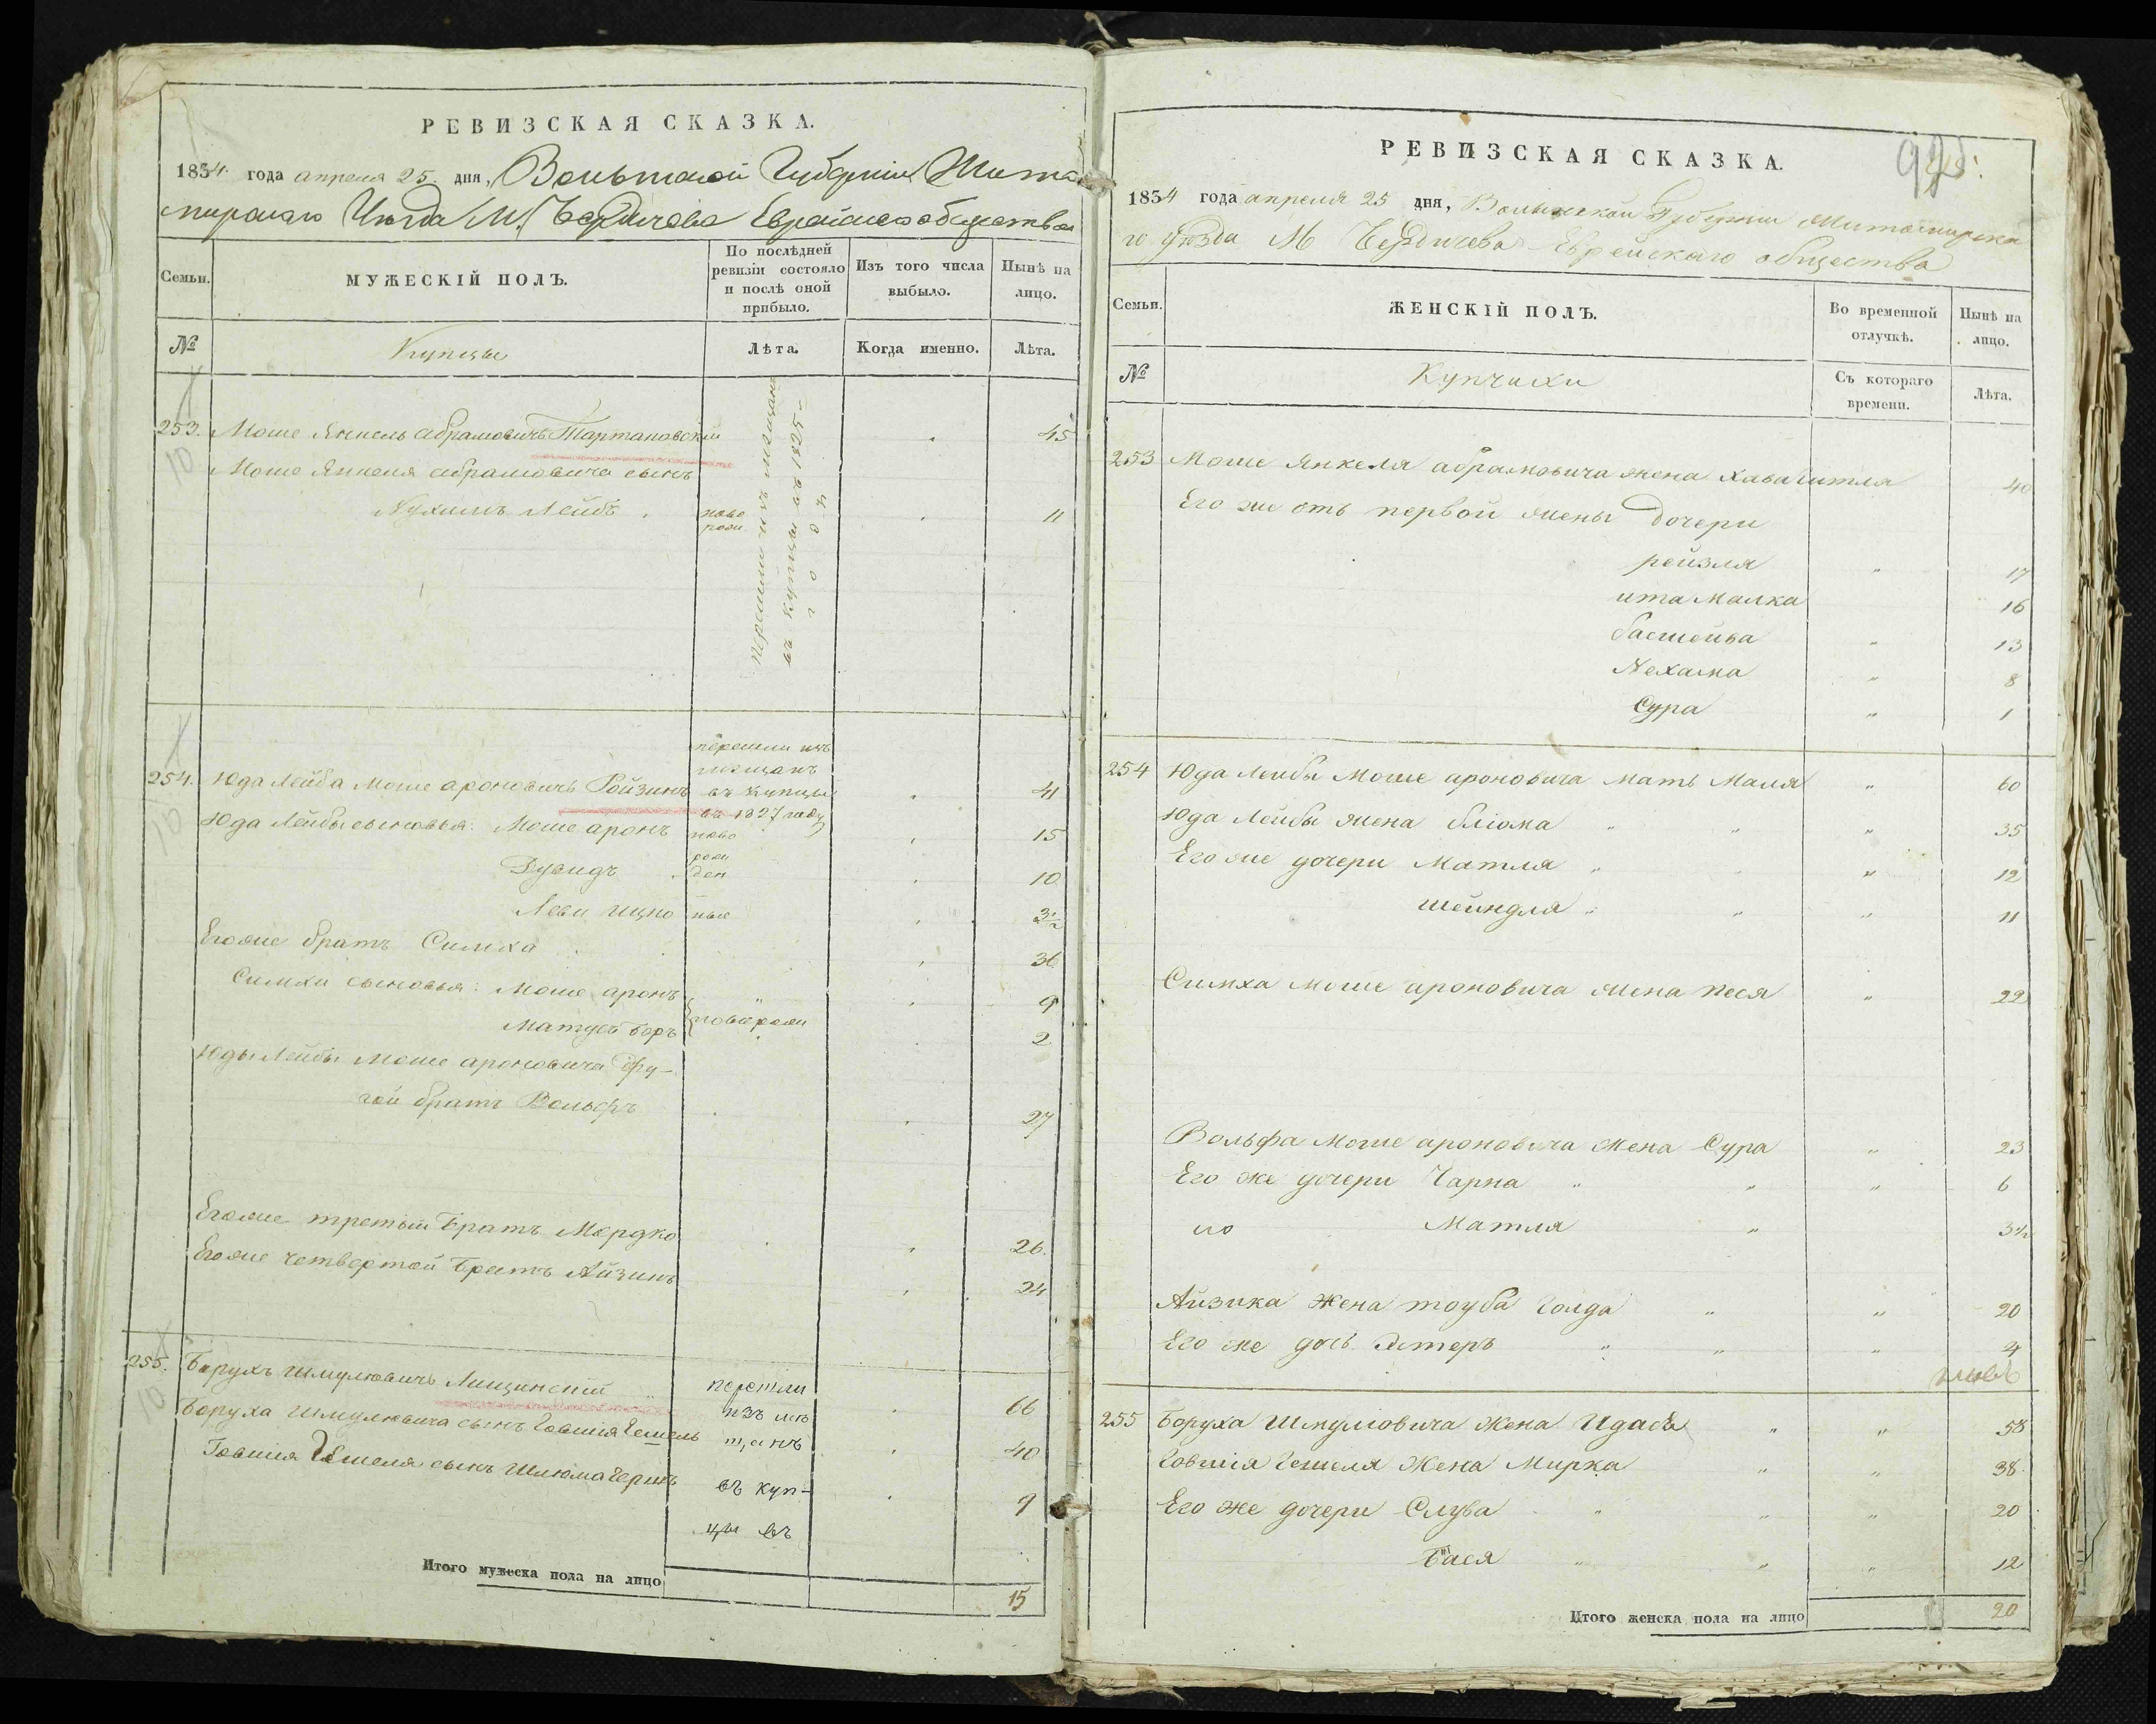 РЕВИЗСКАЯ СКАЗКА.
1834 года апреля 25. дня, Волынской Губерніи Жито
мирскаго Уезда М. Бердичева Еврейскаго общества
Семьи.
МУЖЕСКІЙ ПОЛЪ.
По послѣдней ревизіи состояло и послѣ оной прибыло.
Изъ того числа выбыло.
Нынѣ на лицо.
№
Купцы
Лѣта.
Когда именно.
Лѣта.
перешли изъ мещанъ
въ купцы въ 1825
году
253. Моше Янкель Абрамовичъ Тартаковскій 45
10
Моше Янкеля Абрамовича сынъ
Нухимъ Лейбъ ново рожд. 11
перешли изъ
мещанъ
254. Юда Лейба Моше Ароновичъ Ройзинъ въ купцы 41
въ 1827 году
10
Юда Лейбы сыновья: Моше Аронъ ново 15
рож
Дувидъ ден 10
Леви Ицко ные 3½
Егоже братъ Симха 36
Симхи сыновья: Моше Аронъ 9
Матусъ Беръ новорож 2
Юды Лейбы Моше Ароновича дру-
гой братъ Вольфъ 27
Егоже третьій Братъ Мордко 26.
Егоже четвертой Братъ Айзикъ 24
255. Борухъ Шмулювичъ Лищинскій перешли 66
10
изъ ме
Боруха Шмулювича сынъ Говшія Гешель щанъ 40
Говшія Гешеля сынъ Шлюма Гершъ въ куп- 9
цы въ
Итого мужеска пола на лицо 15
РЕВИЗСКАЯ СКАЗКА.
1834 года апреля 25 дня, Волынской Губерніи Житомирска
го уезда М Бердичева Еврейскаго общества
Семьи.
ЖЕНСКІЙ ПОЛЪ.
Во временной отлучкѣ.
Нынѣ на лицо.
№
Купчихи
Съ котораго времени.
Лѣта.
253 Моше Янкеля Абрамовича жена Хава Гитля 40
Его же отъ первой жены дочери
рейзля " 17
ита Малка 16
басшейва " 13
Нехама " 8
Сура " 1
254 Юда Лейбы Моше Ароновича мать Маля " 60
Юда Лейбы жена бліома " " " 35
Его же дочери Матля " " " 12
Шейндля " " " 11
Симха Моше Ароновича жена Песя " 22
Вольфа Моше Ароновича жена Сура " 23
Его же дочери Чарна " " " 6
Матля " 3½
Айзика жена тоуба Голда " " 20
Его же дочь Эстеръ " " " 4
255 Боруха Шмуліовича жена Идася " " 58
Говшія Гешеля жена Мирка " " 38
Его же дочери Слува " " " 20
Бася " " " 12
Итого женска пола на лицо 20